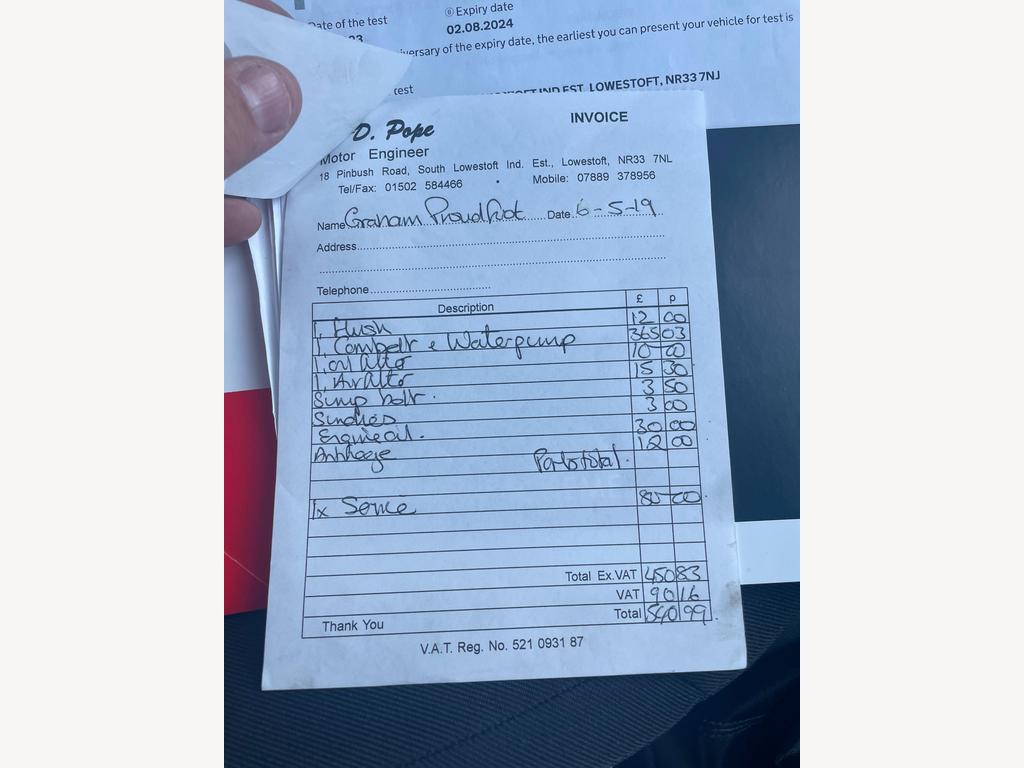 Date of the test
⑥ Expiry date
23
02.08.2024
iversary of the expiry date, the earliest you can present your vehicle for test is
IND EST, LOWESTOFT, NR33 7NJ
D. Pope
INVOICE
Motor Engineer
18 Pinbush Road, South Lowestoft Ind. Est., Lowestoft, NR33 7NL
Tel/Fax: 01502 584466 • Mobile: 07889 378956
Name Graham Proudfoot Date 6-5-19
Address
Telephone
Description £ p
1, Flush 12 00
1, Cambelt & Waterpump 365 03
1, oil filter 10 00
1, Air filter 15 30
Sump bolt. 3 50
Sundries 3 00
Engine oil. 30 00
Antifreeze 12 00
Parts total.
1x Service 85 00
Total Ex.VAT 450 83
VAT 90 16
Total 540 99
Thank You
V.A.T. Reg. No. 521 0931 87